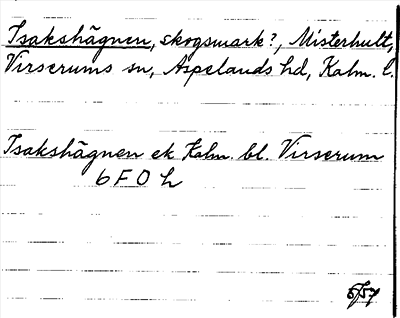 Isakshägnen, skogsmark?, Misterhult,
Virserums sn, Aspelands hd, Kalm. l.
Isakshägnen ek Kalm. bl. Virserum
6 F 0 h
5/57